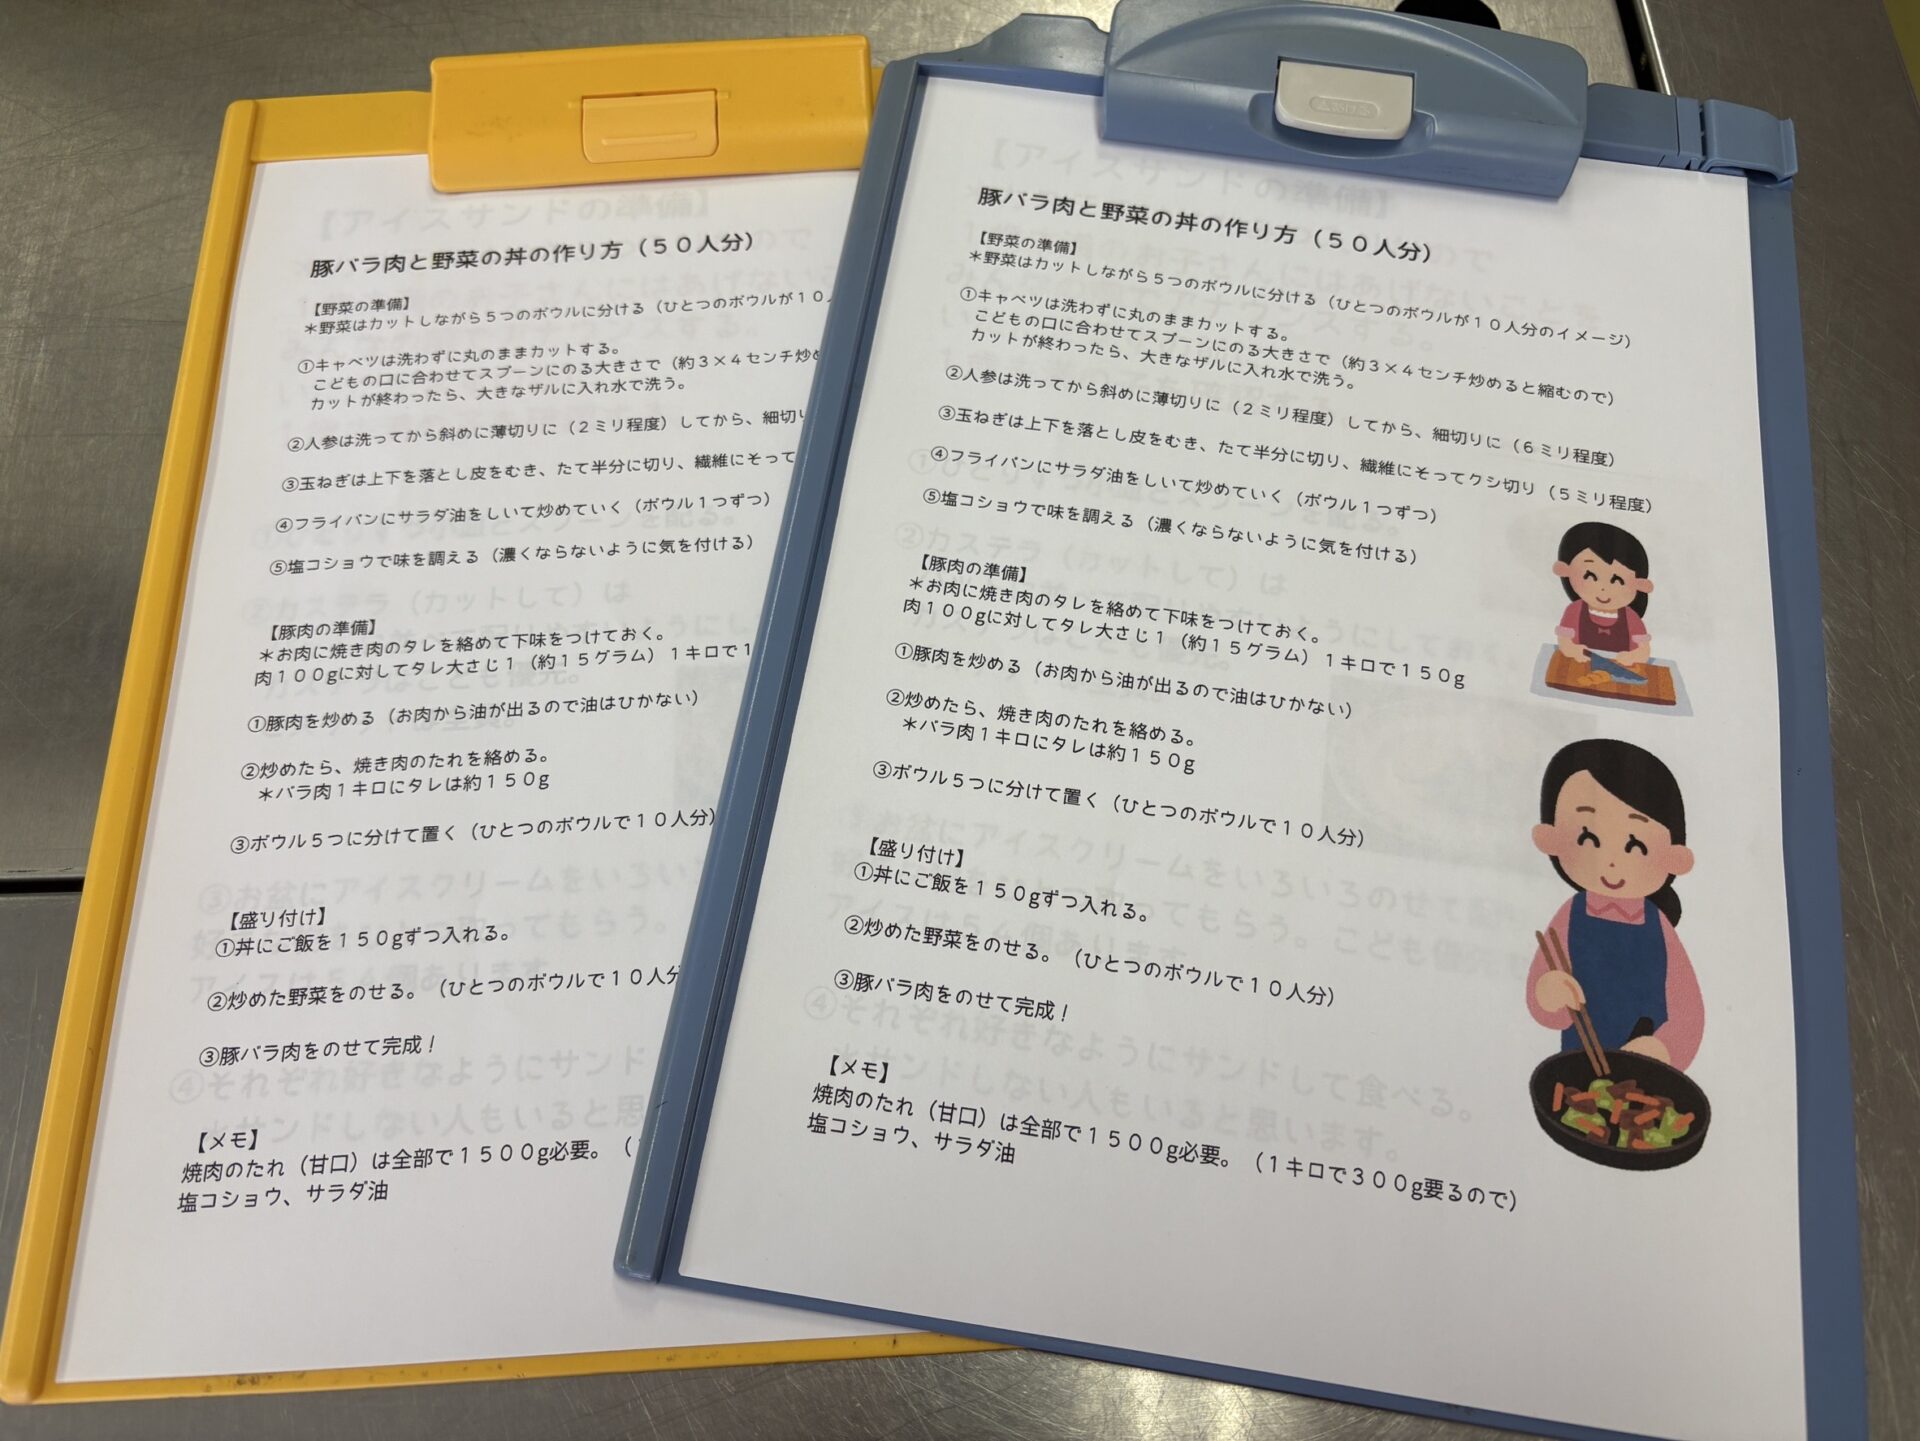 豚バラ肉と野菜の丼の作り方（５０人分）
【野菜の準備】
＊野菜はカットしながら５つのボウルに分ける（ひとつのボウルが１０人
①キャベツは洗わずに丸のままカットする。
こどもの口に合わせてスプーンにのる大きさで（約３×４センチ炒め
カットが終わったら、大きなザルに入れ水で洗う。
②人参は洗ってから斜めに薄切りに（２ミリ程度）してから、細切り
③玉ねぎは上下を落とし皮をむき、たて半分に切り、繊維にそって
④フライパンにサラダ油をしいて炒めていく（ボウル１つずつ）
⑤塩コショウで味を調える（濃くならないように気を付ける）
【豚肉の準備】
＊お肉に焼き肉のタレを絡めて下味をつけておく。
肉１００gに対してタレ大さじ１（約１５グラム）１キロで１
①豚肉を炒める（お肉から油が出るので油はひかない）
②炒めたら、焼き肉のたれを絡める。
＊バラ肉１キロにタレは約１５０g
③ボウル５つに分けて置く（ひとつのボウルで１０人分）
【盛り付け】
①丼にご飯を１５０gずつ入れる。
②炒めた野菜をのせる。（ひとつのボウルで１０人分
③豚バラ肉をのせて完成！
【メモ】
焼肉のたれ（甘口）は全部で１５００g必要。（
塩コショウ、サラダ油
豚バラ肉と野菜の丼の作り方（５０人分）
【野菜の準備】
＊野菜はカットしながら５つのボウルに分ける（ひとつのボウルが１０人分のイメージ）
①キャベツは洗わずに丸のままカットする。
こどもの口に合わせてスプーンにのる大きさで（約３×４センチ炒めると縮むので）
カットが終わったら、大きなザルに入れ水で洗う。
②人参は洗ってから斜めに薄切りに（２ミリ程度）してから、細切りに（６ミリ程度）
③玉ねぎは上下を落とし皮をむき、たて半分に切り、繊維にそってクシ切り（５ミリ程度）
④フライパンにサラダ油をしいて炒めていく（ボウル１つずつ）
⑤塩コショウで味を調える（濃くならないように気を付ける）
【豚肉の準備】
＊お肉に焼き肉のタレを絡めて下味をつけておく。
肉１００gに対してタレ大さじ１（約１５グラム）１キロで１５０g
①豚肉を炒める（お肉から油が出るので油はひかない）
②炒めたら、焼き肉のたれを絡める。
＊バラ肉１キロにタレは約１５０g
③ボウル５つに分けて置く（ひとつのボウルで１０人分）
【盛り付け】
①丼にご飯を１５０gずつ入れる。
②炒めた野菜をのせる。（ひとつのボウルで１０人分）
③豚バラ肉をのせて完成！
【メモ】
焼肉のたれ（甘口）は全部で１５００g必要。（１キロで３００g要るので）
塩コショウ、サラダ油